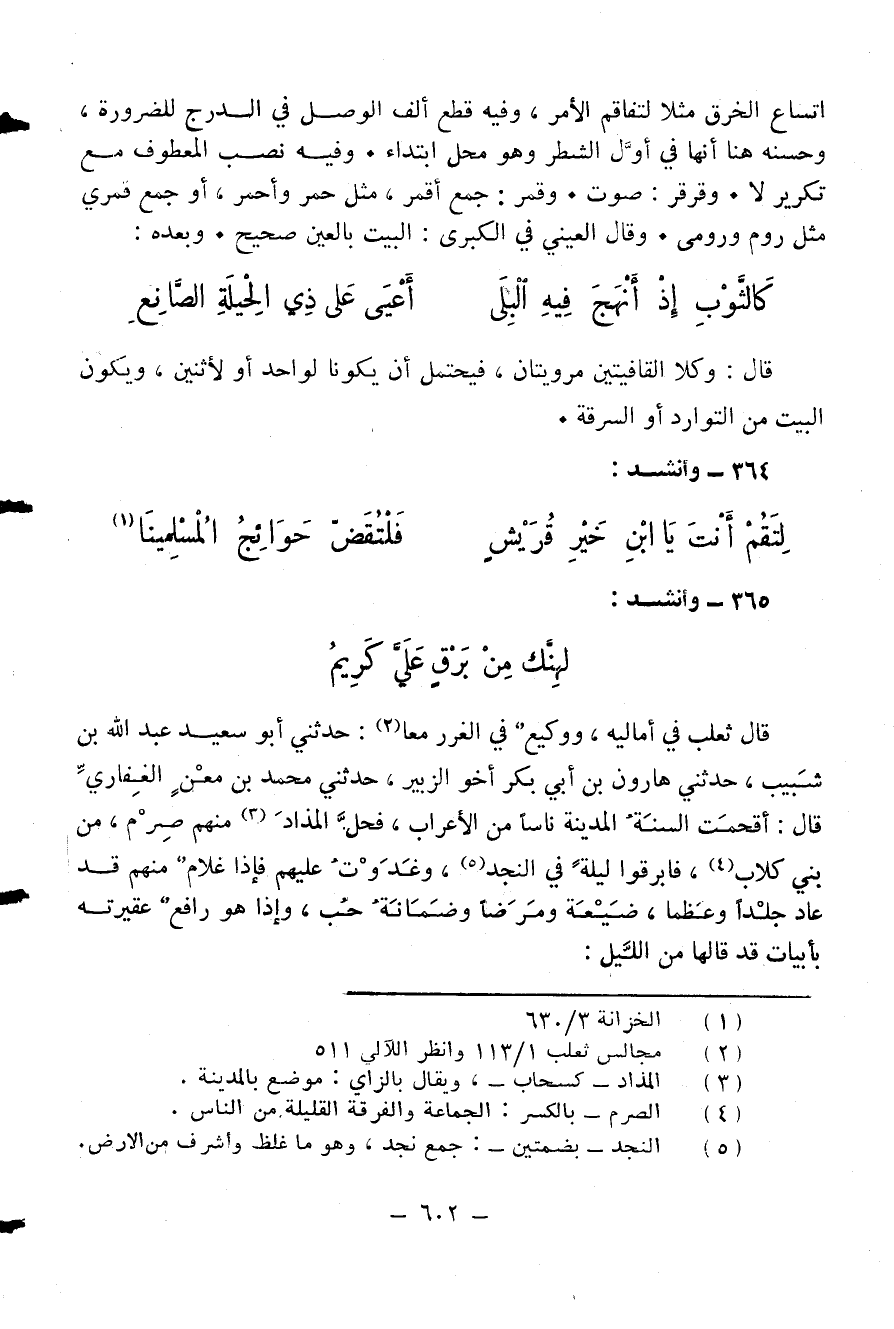 اتساع الخرق مثلا لتفاقم الأمر ، وفيه قطع ألف الوصل في الدرج للضرورة ،
وحسنه هنا أنها في أوَّل الشطر وهو محل ابتداء . وفيه نصب المعطوف مع
تكرير لا . وقرقر : صوت . وقمر : جمع أقمر ، مثل حمر وأحمر ، أو جمع قمري
مثل روم ورومى . وقال العيني في الكبرى : البيت بالعين صحيح . وبعده :
كَالثَّوْبِ إِذْ أَنْهَجَ فِيهِ ٱلْبِلَى أَعْيَى عَلى ذِي الْحِيلَةِ الصَّانِعِ
قال : وكلا القافيتين مرويتان ، فيحتمل أن يكونا لواحد أو لأثنين ، ويكون
البيت من التوارد أو السرقة .
٣٦٤ ــ وأنشد :
لِتَقُمْ أَنْتَ يَا ابْنِ خَيْرِ قُرَيْشٍ فَلْتُقَضّ حَوَائِجُ الْمُسْلِمِينَا (١)
٣٦٥ ــ وأنشد :
لَهِنَّك مِنْ بَرْقٍ عَلَيَّ كَرِيمُ
قال ثعلب في أماليه ، ووكيع" في الغرر معا (٢) : حدثني أبو سعيد عبد الله بن
شَبيب ، حدثني هارون بن أبي بكر أخو الزبير ، حدثني محمد بن معْنٍ الغِفاريّ
قال : أقحمَت السنةُ المدينة ناساً من الأعراب ، فحلَّ المذادَ (٣) منهم صِرْم ، من
بني كلاب (٤) ، فابرقوا ليلةً في النجد (٥) ، وغدَوْتُ عليهم فإذا غلامٌ منهم قد
عاد جلْداً وعَظما ، ضَيْعَة ومرَضاً وضَمانَةُ حُب ، وإذا هو رافعٌ عقيرته
بأبيات قد قالها من اللَّيل :
(١) الخزانة ٦٣٠/٣
(٢) مجالس ثعلب ١١٣/١ وانظر اللآلي ٥١١
(٣) المذاد ــ كسحاب ــ ، ويقال بالزاي : موضع بالمدينة .
(٤) الصرم ــ بالكسر : الجماعة والفرقة القليلة من الناس .
(٥) النجد ــ بضمتين ــ : جمع نجد ، وهو ما غلظ وأشرف من الارض .
ــ ٦٠٢ ــ